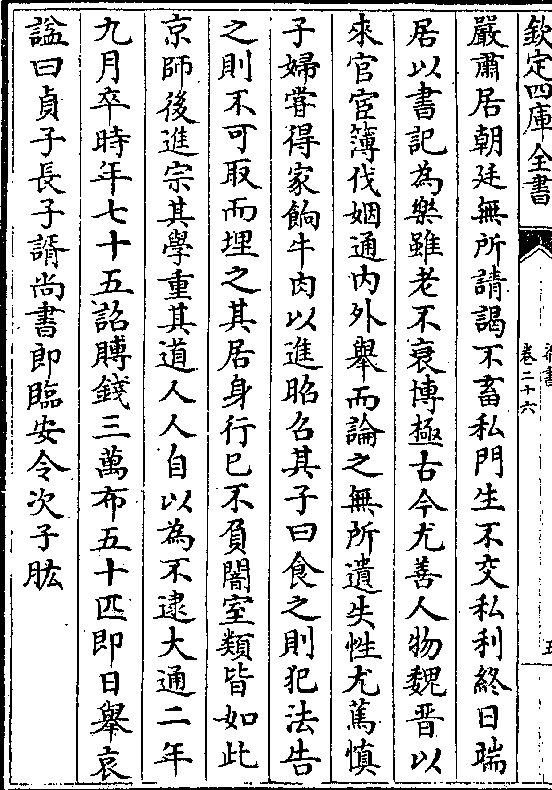 欽定四庫全書
卷二十六
嚴肅居朝廷無所請謁不畜私門生不交私利終日端
居以書記為樂雖老不衰博極古今尤善人物魏晉以
來官宦簿伐姻通内外舉而論之無所遺失性尤篤慎
子婦嘗得家餉牛肉以進昭召其子曰食之則犯法告
之則不可取而埋之其居身行已不負闇室類皆如此
京師後進宗其學重其道人人自以為不逮大通二年
九月卒時年七十五詔賻錢三萬布五十匹即日舉哀
諡曰貞子長子諝尚書郎臨安令次子肱